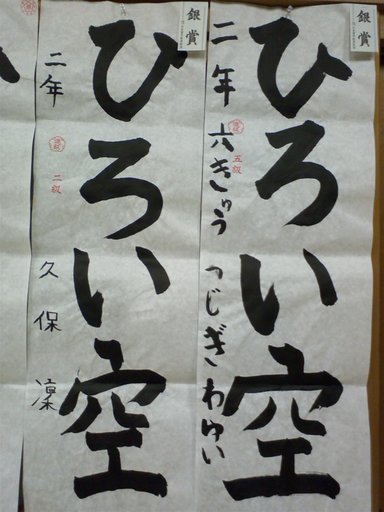 銀賞
ひろい空
二年 六きゅう つじぎわゆい
五級
銀賞
ひろい空
二年 久保凜
二級
ひ